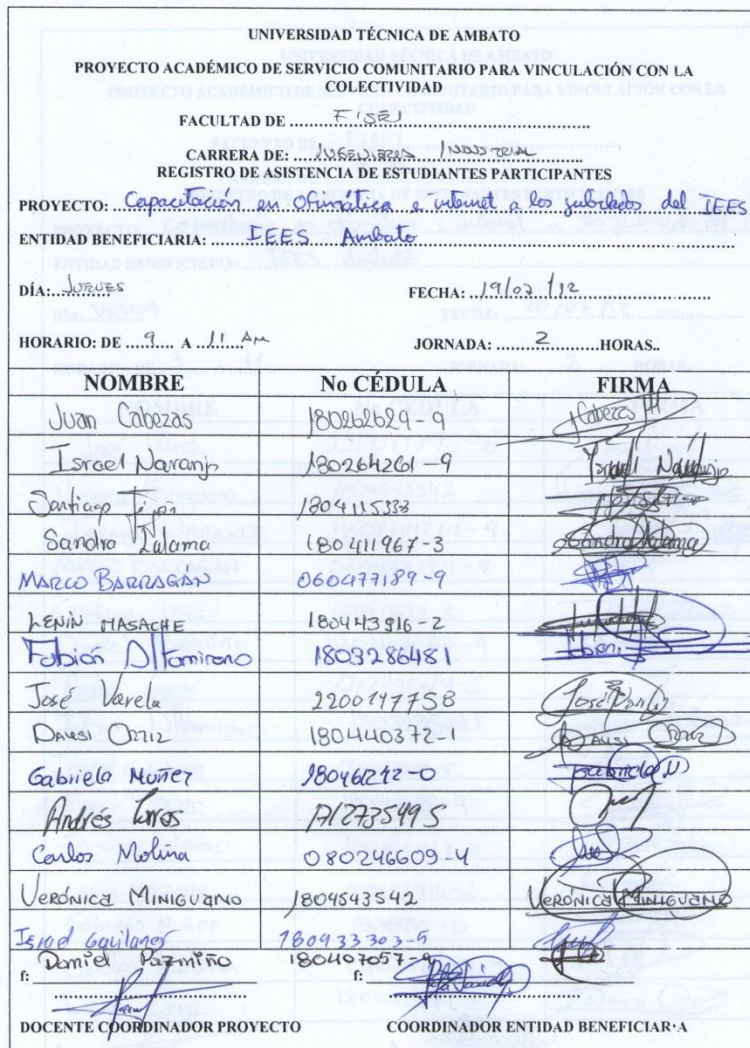 UNIVERSIDAD TÉCNICA DE AMBATO
PROYECTO ACADÉMICO DE SERVICIO COMUNITARIO PARA VINCULACIÓN CON LA
COLECTIVIDAD
FACULTAD DE ...... FISEI
CARRERA DE: .... INGENIERIA INDUSTRIAL
REGISTRO DE ASISTENCIA DE ESTUDIANTES PARTICIPANTES
PROYECTO: Capacitación en Ofimática e internet a los jubilados del IEES
ENTIDAD BENEFICIARIA: IEES Ambato
DÍA: JUEVES FECHA: 19/07/12
HORARIO: DE 9 A 11 AM JORNADA: 2 HORAS..
NOMBRE No CÉDULA FIRMA
Juan Cabezas 180262629-9 Cabezas
Israel Naranjo 180264261-9 Israel Naranjo
Santiago 1804115333
Sandra Lalama 180411967-3
MARCO BARRAGÁN 060477189-9
LENIN MASACHE 180443916-2
Fabián Altamirano 1803286481
José Varela 2200117758
DAYSI ORTIZ 180440372-1 DAYSI
Gabriela Muñoz Gabriela
Andrés 1712735495
Carlos Molina 080246609-4
VERÓNICA MINIGUANO 1804543542 VERÓNICA MINIGUANO
Israel 180933303-5
Daniel Pazmiño 180407057-9
f: f:
DOCENTE COORDINADOR PROYECTO COORDINADOR ENTIDAD BENEFICIARIA